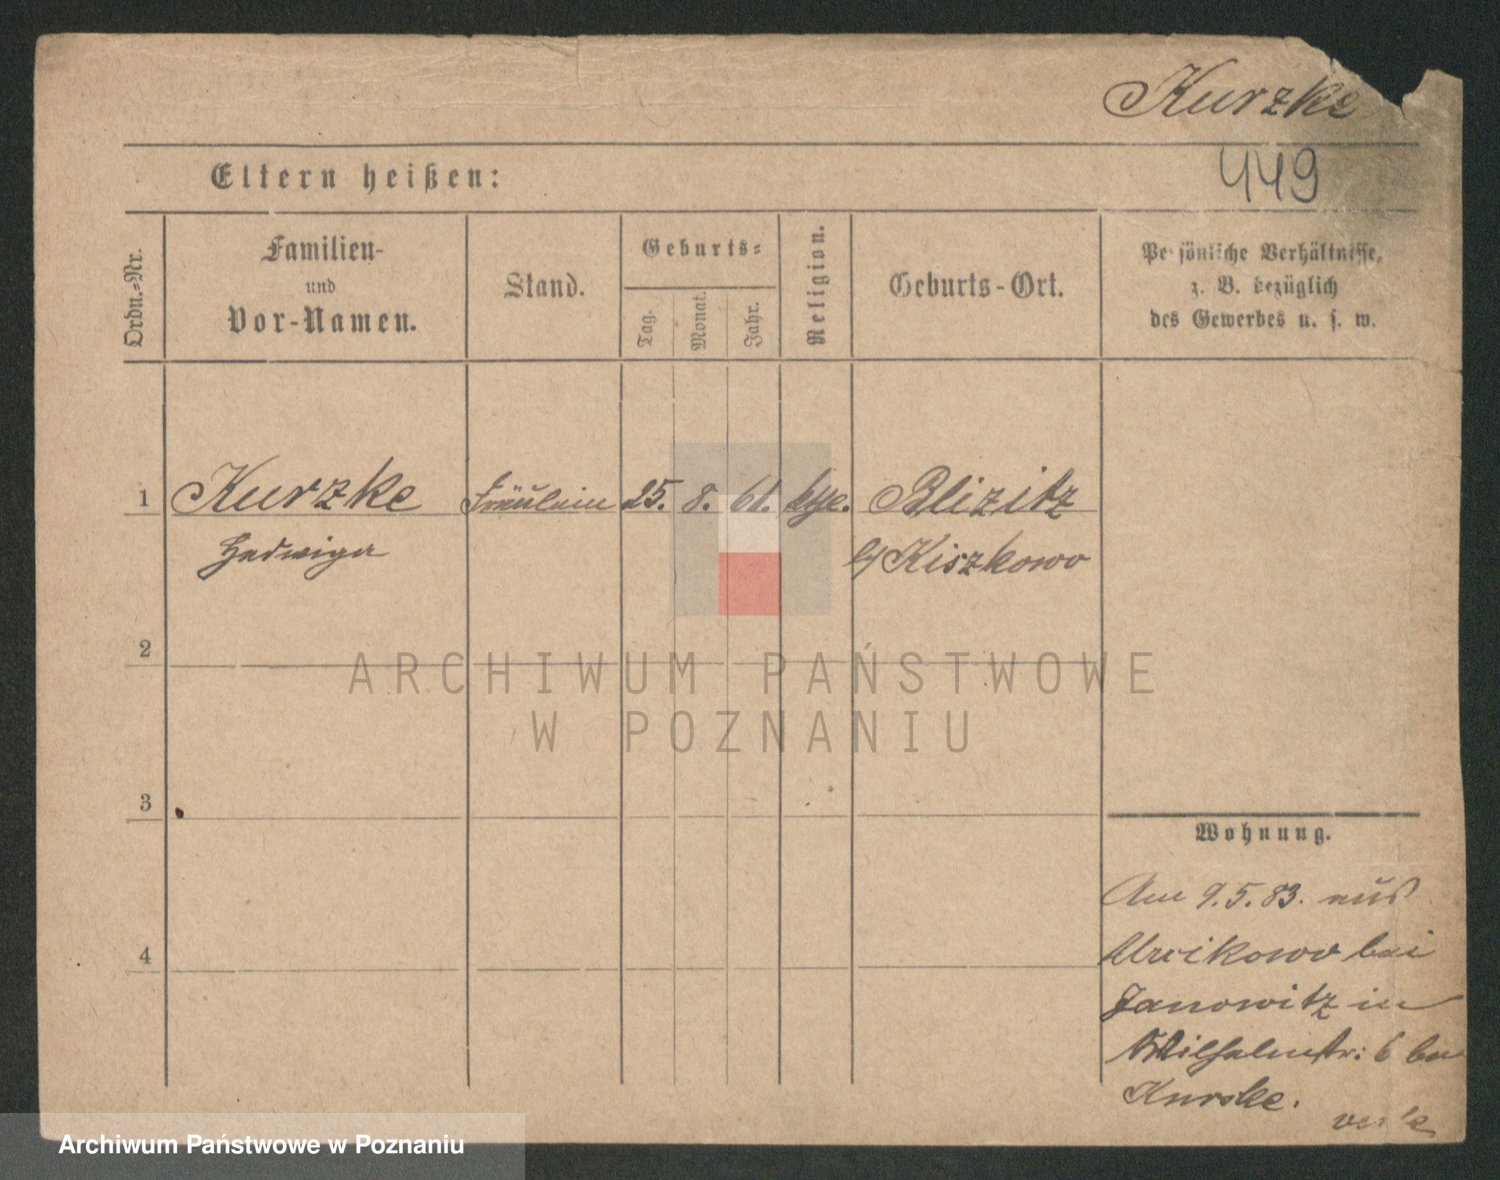 Kurzke
449
Eltern heißen:
Ordn.-Nr.
Familien-
und
Vor-Namen.
Stand.
Geburts-
Tag.
Monat.
Jahr.
Religion.
Geburts-Ort.
Persönliche Verhältnisse,
z. B. bezüglich
des Gewerbes u. s. w.
1 Kurzke Fräulein 25. 8. 61. Blizitz
Hedwiga b/ Kiszkowo
2
ARCHIWUM PAŃSTWOWE
W POZNANIU
3
Wohnung.
Am 9.5.83. aus
bei
4
Janowitz in
Wilhelmstr: 6 bei
Kurske.
Archiwum Państwowe w Poznaniu